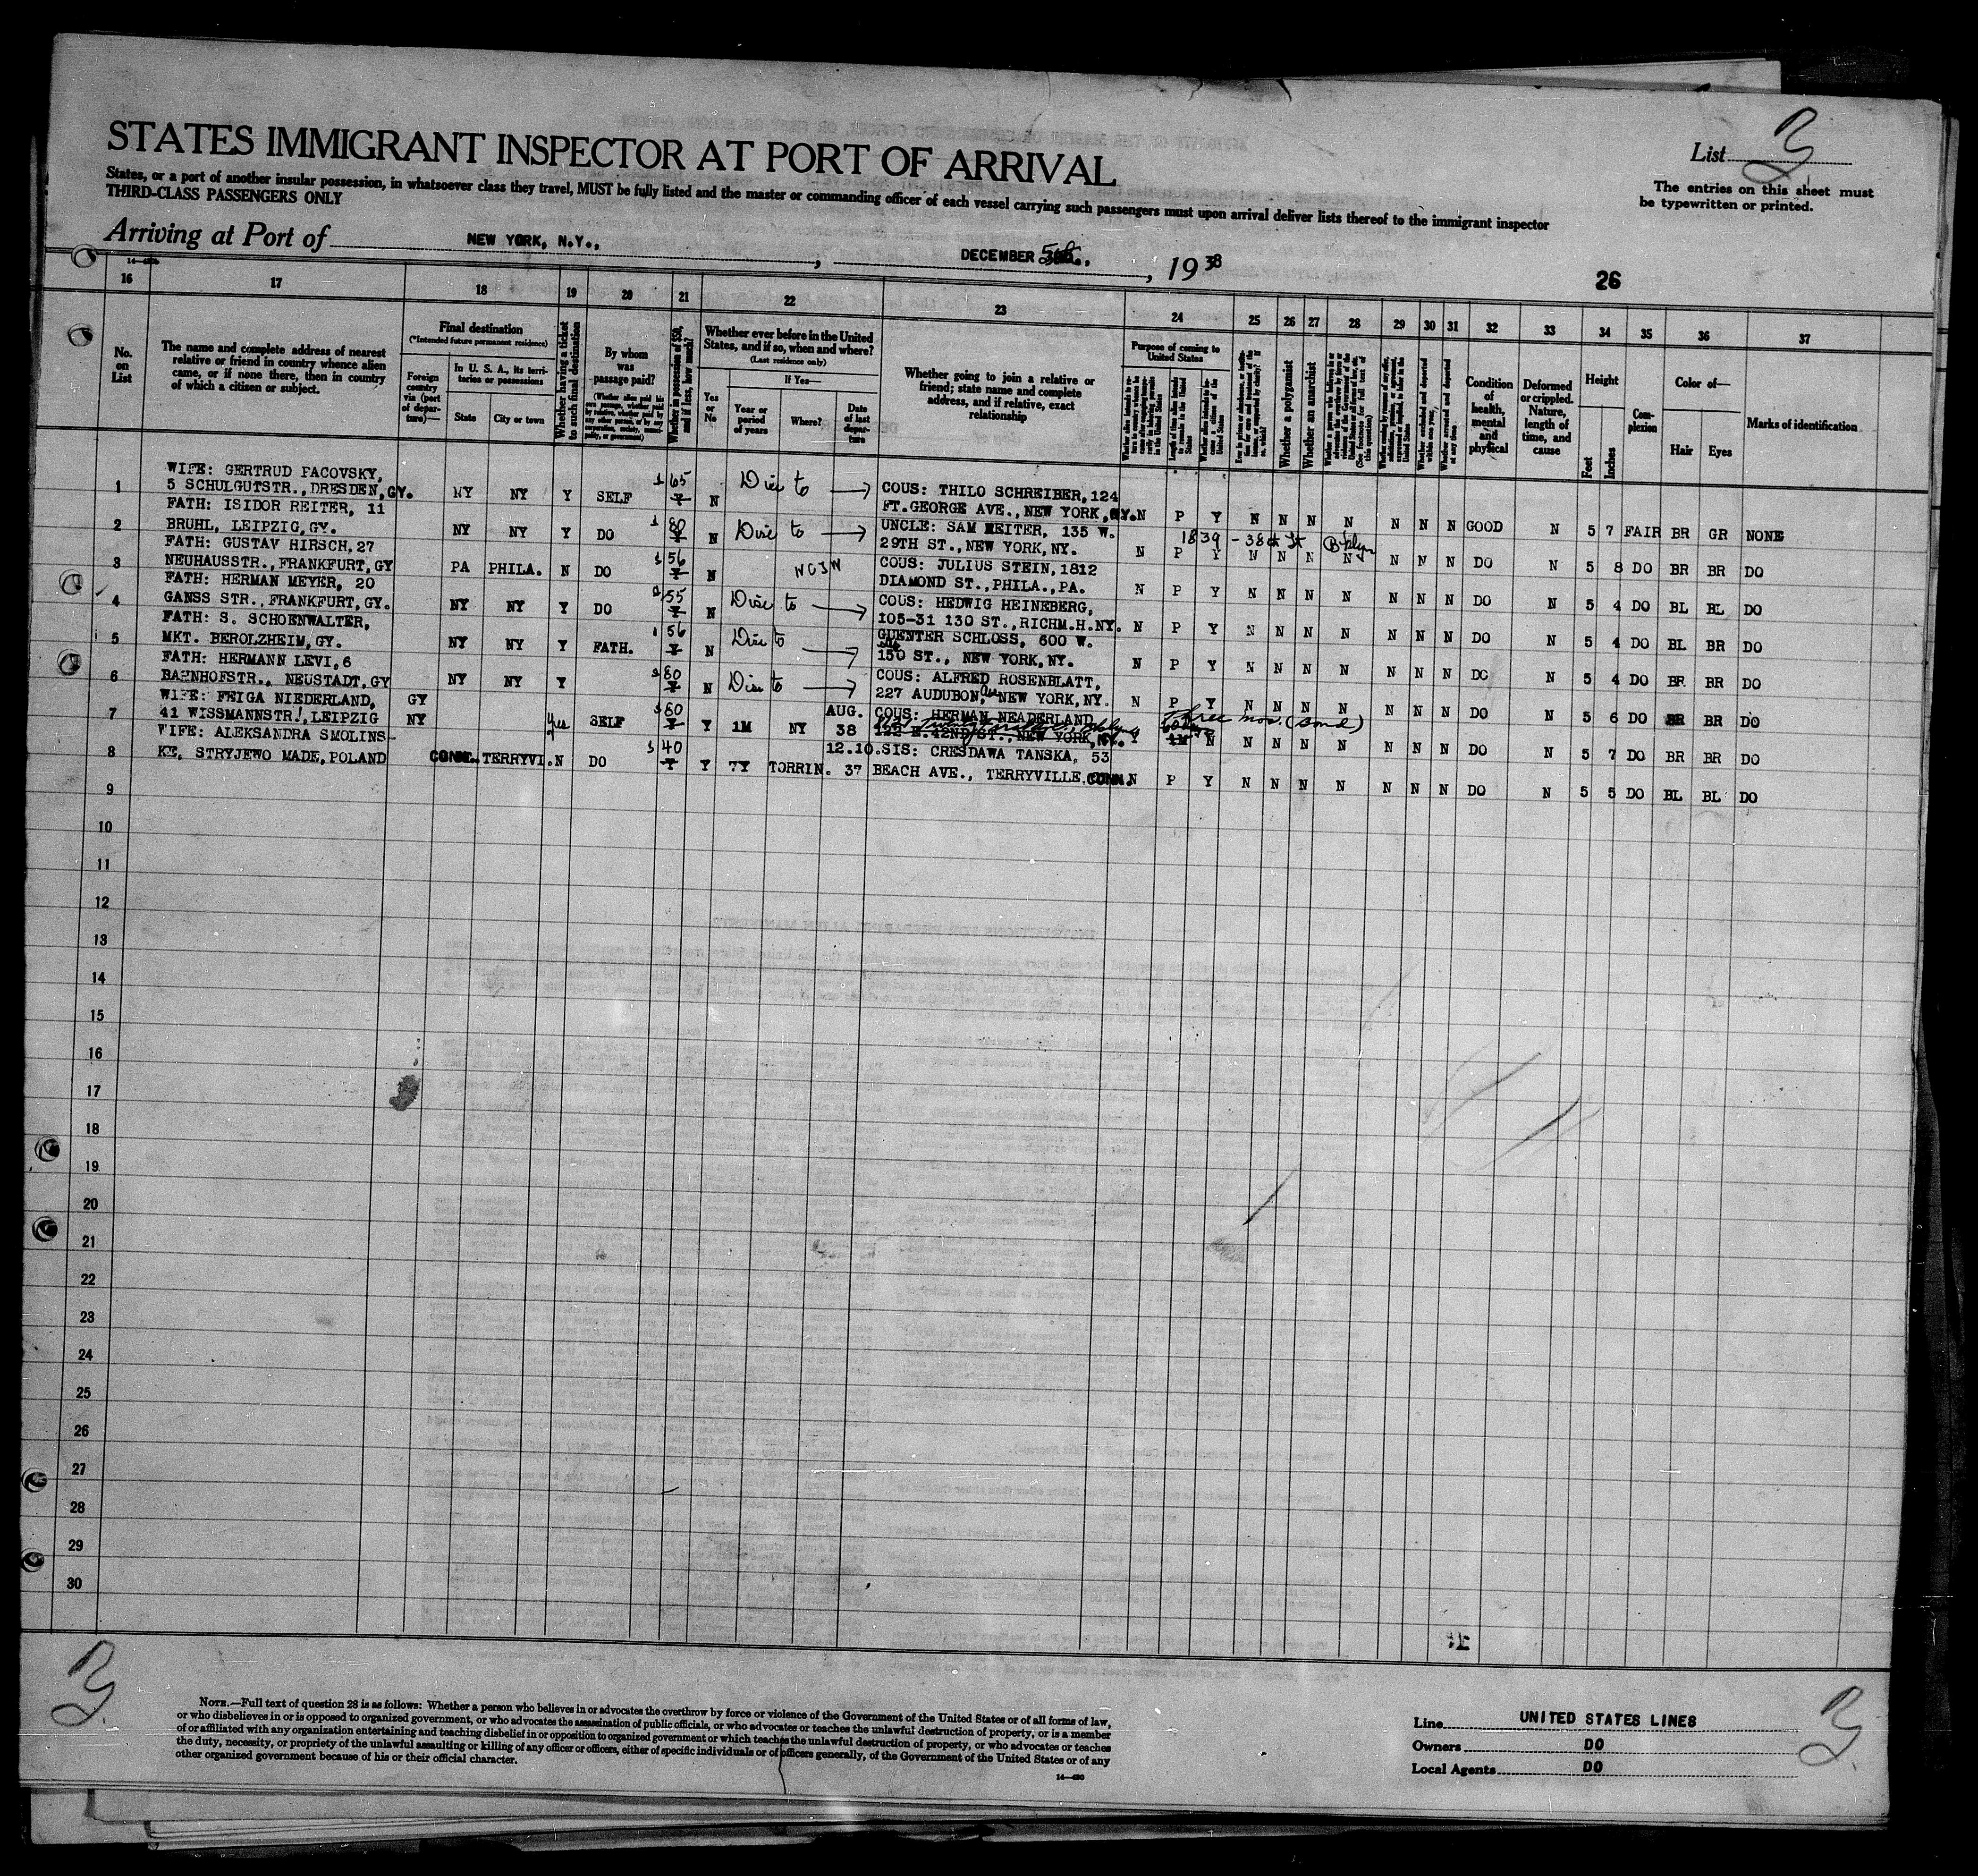 STATES IMMIGRANT INSPECTOR AT PORT OF ARRIVAL
List 3
States, or a port of another insular possession, in whatsoever class they travel, MUST be fully listed and the master or commanding officer of each vessel carrying such passengers must upon arrival deliver lists thereof to the immigrant inspector
THIRD-CLASS PASSENGERS ONLY
The entries on this sheet must
be typewritten or printed.
Arriving at Port of NEW YORK, N.Y., , DECEMBER 5th., , 19 38
26
16 17 18 19 20 21 22 23 24 25 26 27 28 29 30 31 32 33 34 35 36 37
No. on List
The name and complete address of nearest relative or friend in country whence alien came, or if none there, then in country of which a citizen or subject.
Final destination
(*Intended future permanent residence)
Foreign country via (port of departure)—
In U. S. A., its territories or possessions
State
City or town
Whether having a ticket to such final destination
By whom was passage paid?
Whether in possession of $50, and if less, how much?
Whether ever before in the United States, and if so, when and where?
(Last residence only)
Yes or No
If Yes—
Year or period of years
Where?
Date of last departure
Whether going to join a relative or friend; state name and complete address, and if relative, exact relationship
Purpose of coming to United States
Whether a polygamist
Whether an anarchist
Condition of health, mental and physical
Deformed or crippled. Nature, length of time, and cause
Height
Feet
Inches
Complexion
Color of—
Hair
Eyes
Marks of identification
WIFE: GERTRUD FACOVSKY,
1 5 SCHULGUTSTR., DRESDEN, GY. NY NY Y SELF $ 65 N Disc to COUS: THILO SCHREIBER, 124
FT.GEORGE AVE., NEW YORK, NY. N P Y N N N N N N N GOOD N 5 7 FAIR BR GR NONE
FATH: ISIDOR REITER, 11
2 BRUHL, LEIPZIG, GY. NY NY Y DO $ 80 N Disc to UNCLE: SAM REITER, 135 W.
1839 - 38th St Bklyn
29TH ST., NEW YORK, NY. N P Y N N N N N N N DO N 5 8 DO BR BR DO
FATH: GUSTAV HIRSCH, 27
3 NEUHAUSSTR., FRANKFURT, GY PA PHILA. N DO $ 56 N NCJW COUS: JULIUS STEIN, 1812
DIAMOND ST., PHILA., PA. N P Y N N N N N N N DO N 5 4 DO BL BL DO
FATH: HERMAN MEYER, 20
4 GANSS STR., FRANKFURT, GY. NY NY Y DO $ 55 N Disc to COUS: HEDWIG HEINEBERG,
105-31 130 ST., RICHM.H.NY. N P Y N N N N N N N DO N 5 4 DO BL BR DO
FATH: S. SCHOENWALTER,
5 MKT. BEROLZHEIM, GY. NY NY Y FATH. $ 56 N Disc to GUENTER SCHLOSS, 600 W.
150 ST., NEW YORK, NY. N P Y N N N N N N N DO N 5 4 DO BR BR DO
FATH: HERMANN LEVI, 6
6 BAHNHOFSTR., NEUSTADT, GY NY NY Y $ 80 N Disc to COUS: ALFRED ROSENBLATT,
227 AUDUBON, Ave NEW YORK, NY. N P Y N N N N N N N DO N 5 6 DO BR BR DO
WIFE: FEIGA NIEDERLAND, GY
7 41 WISSMANNSTR., LEIPZIG NY Yes SELF $ 80 Y 1M NY AUG. 38 COUS: HERMAN NEADERLAND
122 E. 42ND ST., NEW YORK, NY. Y 1M N Three mos. N N N N N N N DO N 5 7 DO BR BR DO
WIFE: ALEKSANDRA SMOLINS-
8 KE, STRYJEWO MADE, POLAND CONN. TERRYVI. N DO $ 40 Y 7Y TORRIN. 12.10. 37 SIS: CRESDAWA TANSKA, 53
BEACH AVE., TERRYVILLE, CONN. N P Y N N N N N N N DO N 5 5 DO BL BL DO
9
10
11
12
13
14
15
16
17
18
19
20
21
22
23
24
25
26
27
28
29
30
3
NOTE.—Full text of question 28 is as follows: Whether a person who believes in or advocates the overthrow by force or violence of the Government of the United States or of all forms of law,
or who disbelieves in or is opposed to organized government, or who advocates the assassination of public officials, or who advocates or teaches the unlawful destruction of property, or is a member
of or affiliated with any organization entertaining and teaching disbelief in or opposition to organized government or which teaches the unlawful destruction of property, or who advocates or teaches
the duty, necessity, or propriety of the unlawful assaulting or killing of any officer or officers, either of specific individuals or of officers generally, of the Government of the United States or of any
other organized government because of his or their official character.
Line UNITED STATES LINES
Owners DO
Local Agents DO
3